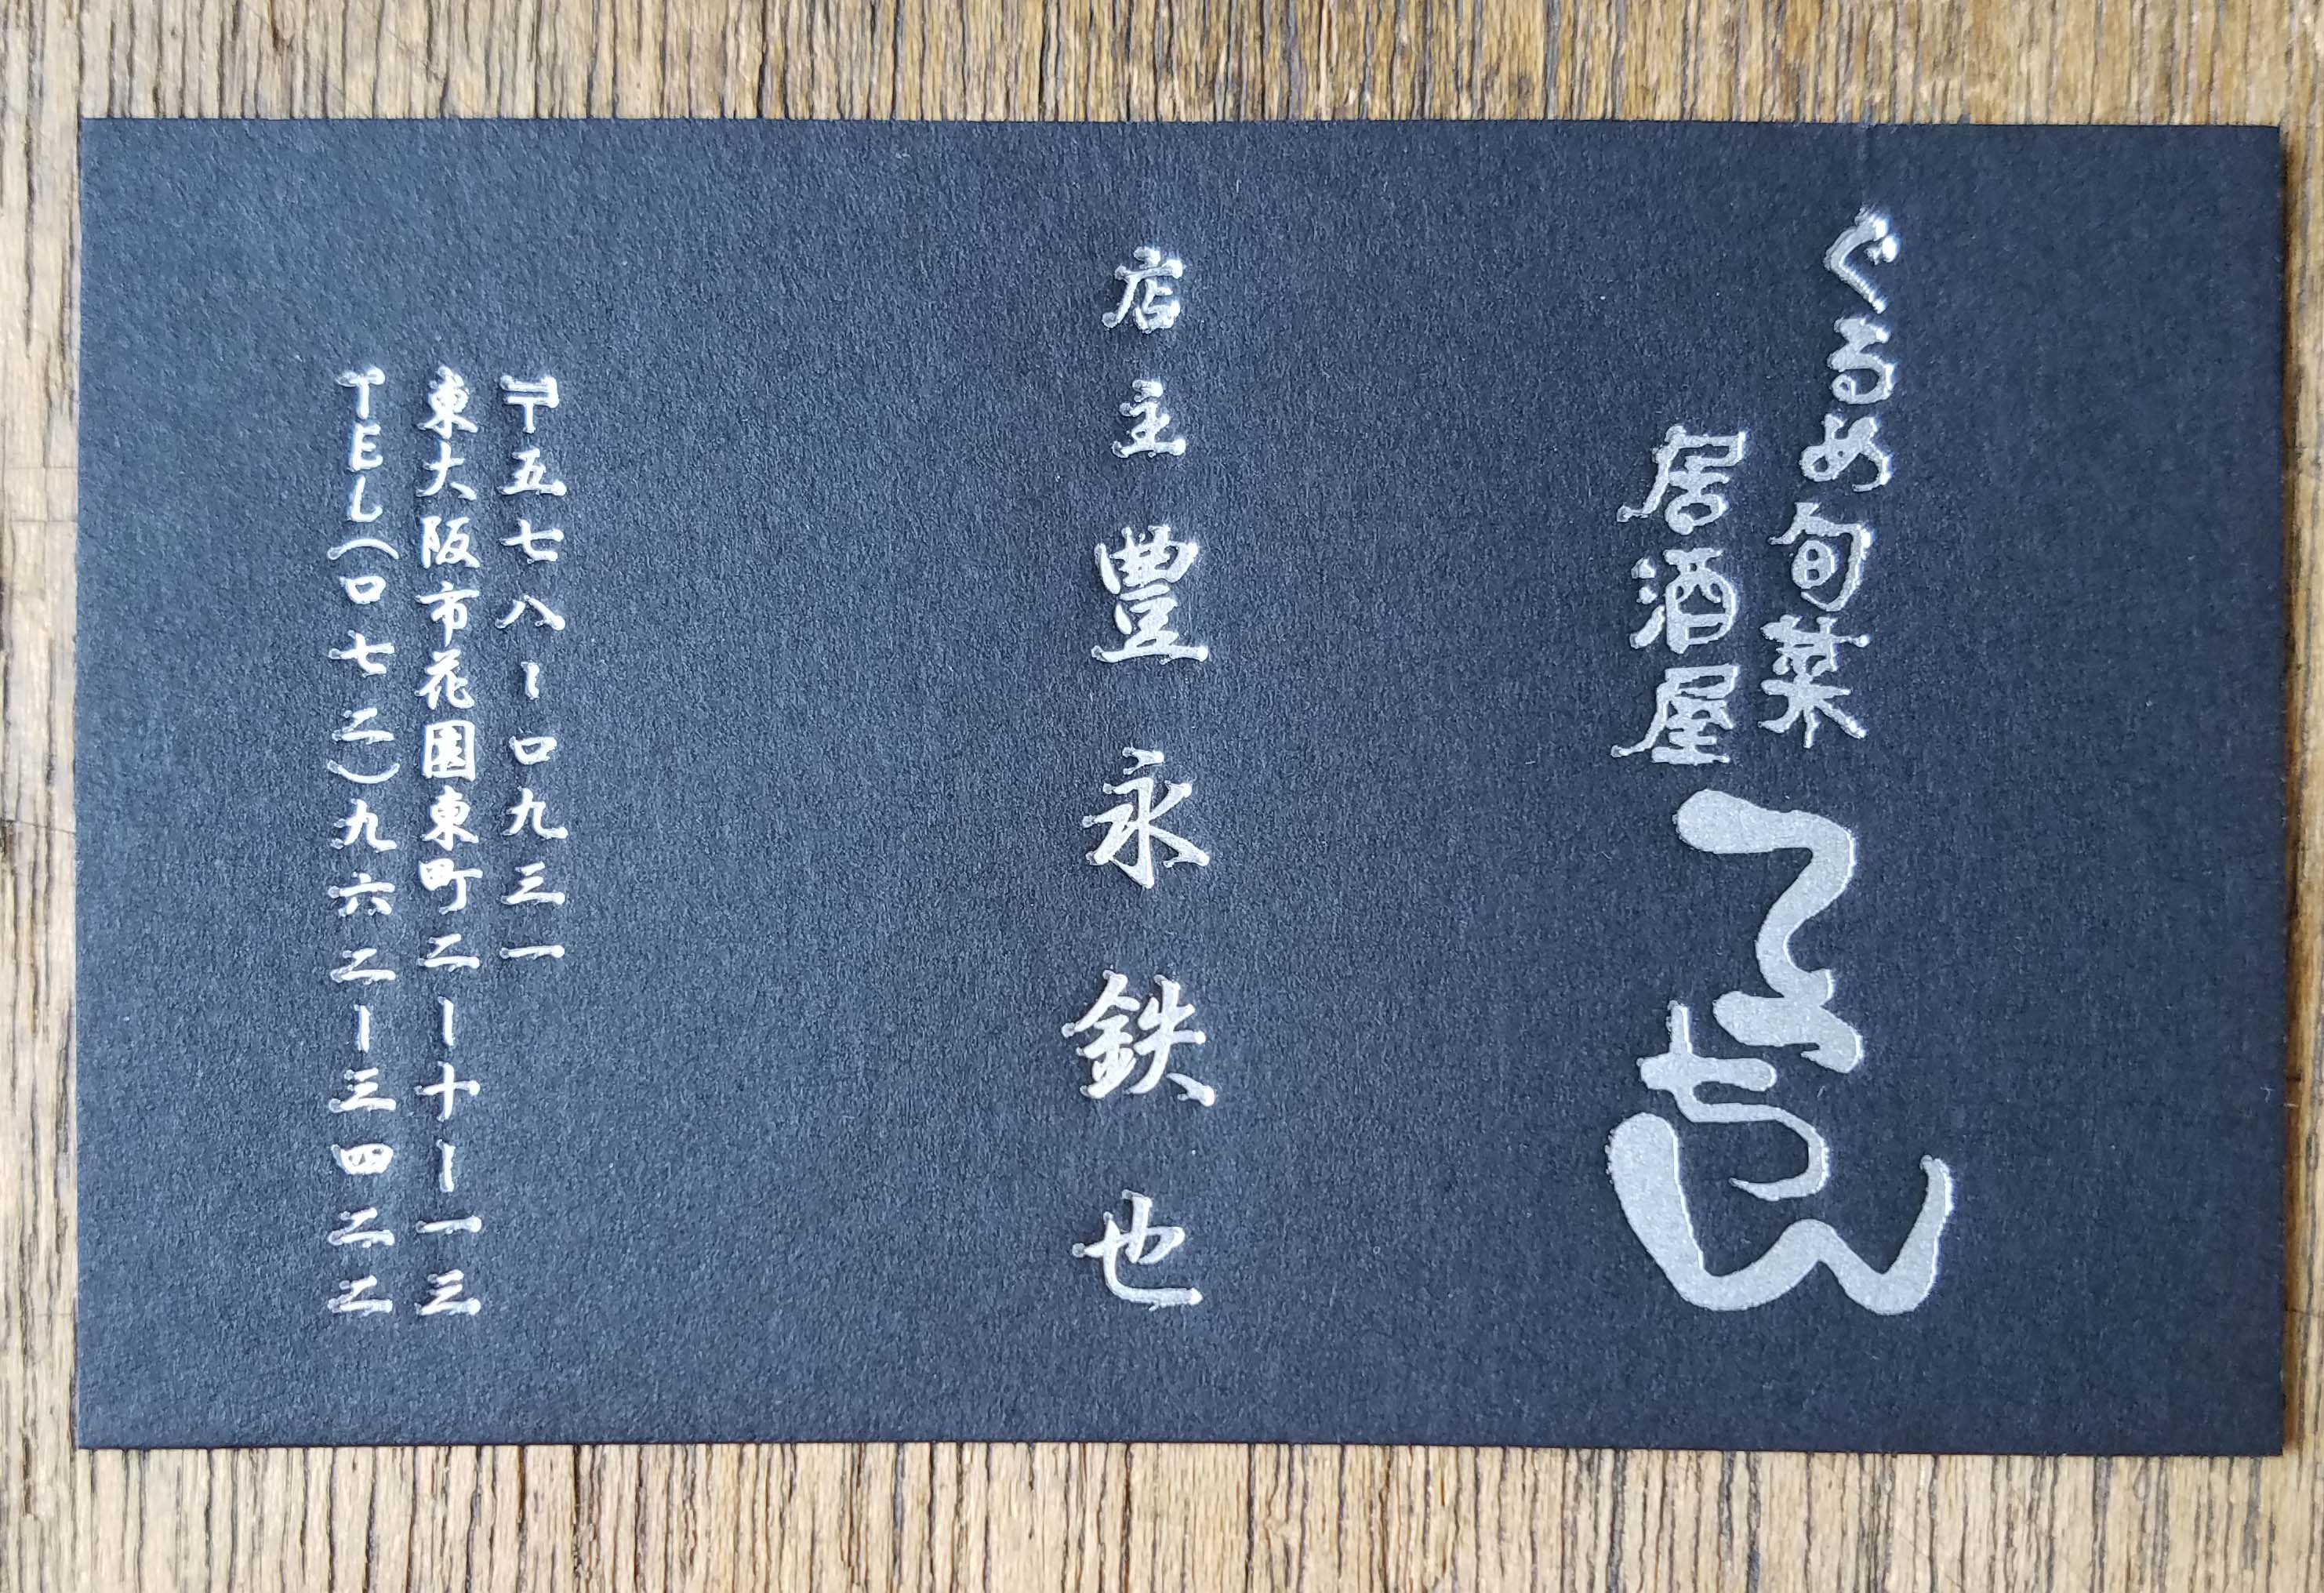 ぐるめ旬菜
居酒屋
店主 豊永鉄也
〒五七八ー〇九三一
東大阪市花園東町二ー十ー一三
TEL(〇七二)九六二ー三四二二